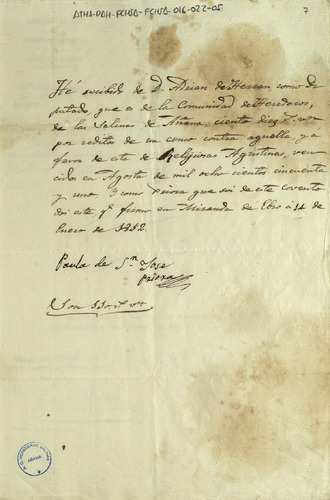 ATHA-DAH-FCHSA-FCHSA-016-022-05
7
Hé recibido de D. Adrian de Herran como di
putado que es de la Comunidad de Herederos,
de las Salinas de Añana, ciento diez r.s von
por reditos de un censo contra aquella, y a
favor de este de Religiosas Agustinas, ven
cidos en Agosto de mil ocho cientos cincuenta
y uno. Y como Priora que soi de este covento
doi este q.e firmo en Miranda de Ebro á 14 de
Enero de 1852
Paula de S.n Jose
Priora
Son 110 r.s von
AÑANA